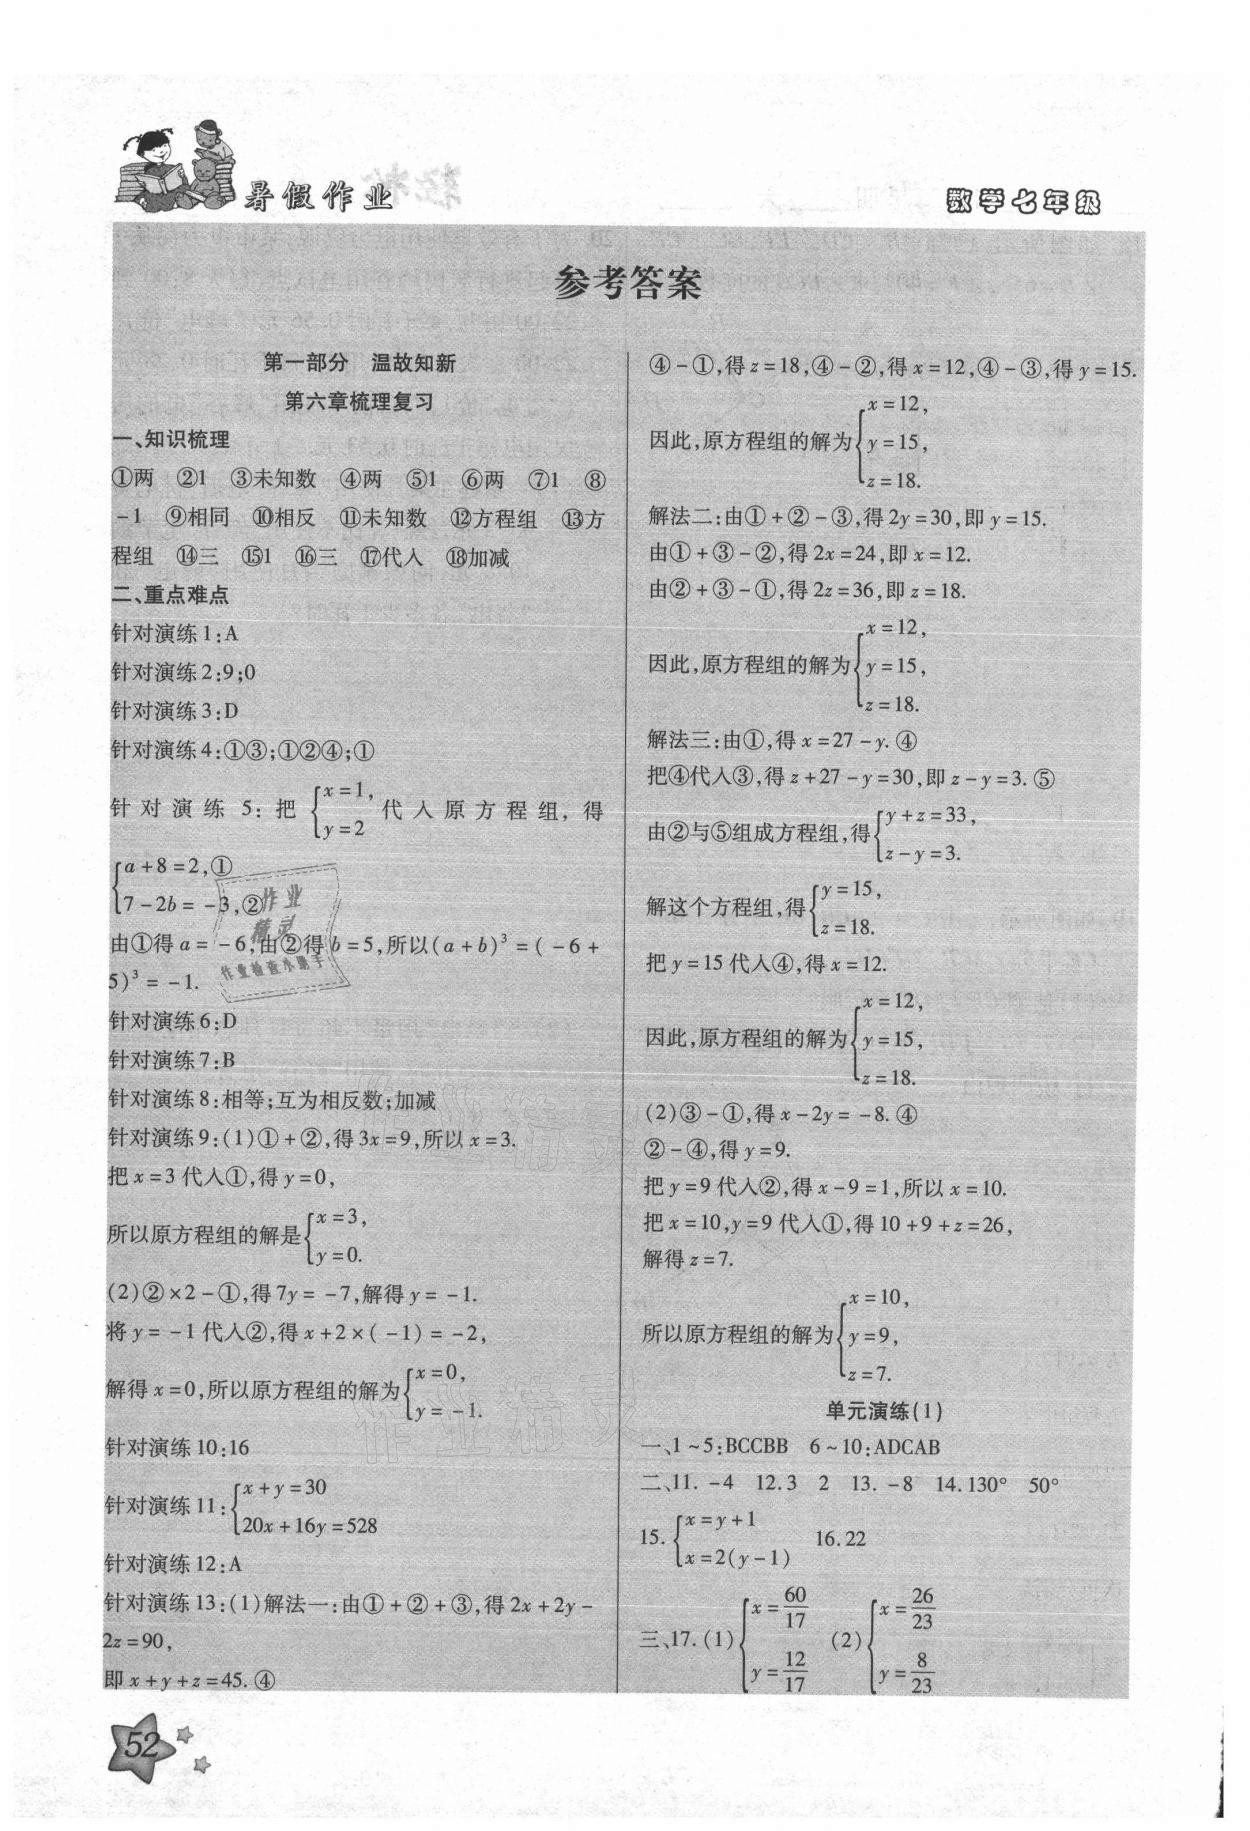 暑假作业
数学七年级
参考答案
第一部分　温故知新
第六章梳理复习
一、知识梳理
①两 ②1 ③未知数 ④两 ⑤1 ⑥两 ⑦1 ⑧
-1 ⑨相同 ⑩相反 ⑪未知数 ⑫方程组 ⑬方
程组 ⑭三 ⑮1 ⑯三 ⑰代入 ⑱加减
二、重点难点
针对演练1:A
针对演练2:9;0
针对演练3:D
针对演练4:①③;①②④;①
针对演练 5: 把{x=1, y=2 代入原方程组, 得
{a+8=2,①
7-2b=-3,②
由①得a=-6,由②得b=5,所以(a+b)³=(-6+
5)³=-1.
针对演练6:D
针对演练7:B
针对演练8:相等;互为相反数;加减
针对演练9:(1)①+②,得3x=9,所以x=3.
把x=3代入①,得y=0,
所以原方程组的解是{x=3, y=0.
(2)②×2-①,得7y=-7,解得y=-1.
将y=-1代入②,得x+2×(-1)=-2,
解得x=0,所以原方程组的解为{x=0, y=-1.
针对演练10:16
针对演练11:{x+y=30 20x+16y=528
针对演练12:A
针对演练13:(1)解法一:由①+②+③,得2x+2y-
2z=90,
即x+y+z=45.④
④-①,得z=18,④-②,得x=12,④-③,得y=15.
因此,原方程组的解为{x=12, y=15, z=18.
解法二:由①+②-③,得2y=30,即y=15.
由①+③-②,得2x=24,即x=12.
由②+③-①,得2z=36,即z=18.
因此,原方程组的解为{x=12, y=15, z=18.
解法三:由①,得x=27-y.④
把④代入③,得z+27-y=30,即z-y=3.⑤
由②与⑤组成方程组,得{y+z=33, z-y=3.
解这个方程组,得{y=15, z=18.
把y=15代入④,得x=12.
因此,原方程组的解为{x=12, y=15, z=18.
(2)③-①,得x-2y=-8.④
②-④,得y=9.
把y=9代入②,得x-9=1,所以x=10.
把x=10,y=9代入①,得10+9+z=26,
解得z=7.
所以原方程组的解为{x=10, y=9, z=7.
单元演练(1)
一、1~5:BCCBB　6~10:ADCAB
二、11.-4　12.3　2　13.-8　14.130°　50°
15.{x=y+1 x=2(y-1)　16.22
三、17.(1){x=60/17 y=12/17　(2){x=26/23 y=8/23
52
作业
精灵
作业检查小助手